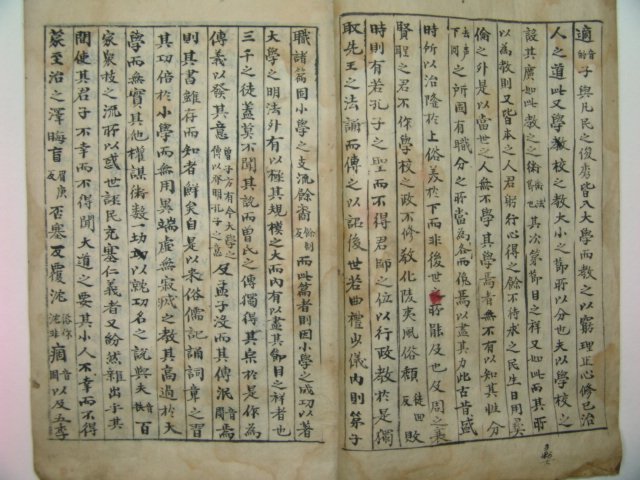 適音的子與凡民之俊秀皆入大學而教之以窮理正心修己治
人之道此又學校之教大小之節所以分也夫以學校之
設其廣如此教之之術其次第節目之詳又如此而其所
以為教則又皆本之人君躬行心得之餘不待求之民生日用彝
倫之外是以當世之人無不學其學焉者無不有以知其性分
去声下同之所固有職分之所當為各而俛焉以盡其力此古昔盛
時所以治隆於上俗美於下而非後世之所能及也及周之衰
賢聖之君不作學校之政不修教化陵夷風俗頹徒回反敗
時則有若孔子之聖而不得君師之位以行政教於是獨
取先王之法誦而傳之以詔後世若曲禮少儀內則弟子
職諸篇固小學之支流餘裔餘制反而此篇者則因小學之成功以著
大學之明法外有以極其規模之大而內有以盡其節目之詳者也
三千之徒蓋莫不聞其說而曾氏之傳獨得其宗於是作為
傳義以發其意曾子方有今大學之傳以發明孔子之意及孟子沒而其傳泯焉
則其書雖存而知者鮮矣自是以來俗儒記誦詞章之習
其功倍於小學而無用異端虛無寂滅之教其高過於大
學而無實其他權謀術數一切以就功名之說與夫音扶百
家衆技之流所以惑世誣民充塞仁義者又紛然雜出乎其
間使其君子不幸而不得聞大道之要其小人不幸而不得
蒙至治之澤晦盲眉庚反否塞反覆沈俗作沉非痼音固以及五季